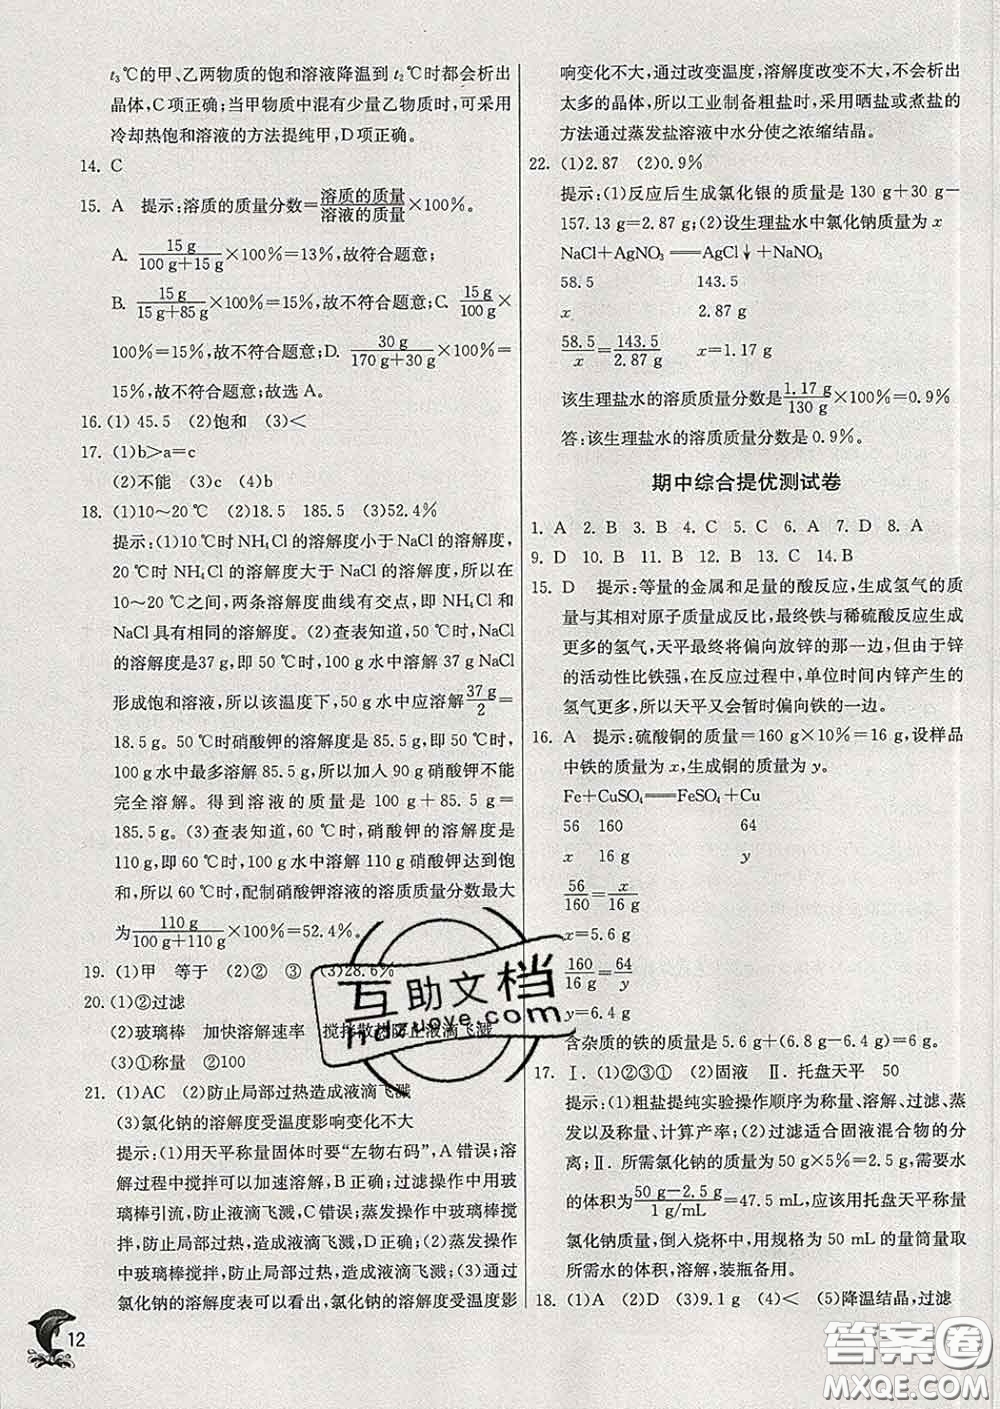 t₃℃的甲、乙两物质的饱和溶液降温到t₂℃时都会析出
晶体,C项正确;当甲物质中混有少量乙物质时,可采用
冷却热饱和溶液的方法提纯甲,D项正确。
14. C
15. A 提示:溶质的质量分数=溶质的质量/溶液的质量×100%。
A. 15 g/100 g+15 g×100%=13%,故符合题意;
B. 15 g/15 g+85 g×100%=15%,故不符合题意;C. 15 g/100 g×
100%=15%,故不符合题意;D. 30 g/170 g+30 g×100%=
15%,故不符合题意;故选A。
16.(1) 45.5 (2)饱和 (3)<
17. (1)b>a=c
(2)不能 (3)c (4)b
18. (1)10~20 ℃ (2)18.5 185.5 (3)52.4%
提示:(1)10 ℃时NH₄Cl的溶解度小于NaCl的溶解度,
20 ℃时NH₄Cl的溶解度大于NaCl的溶解度,所以在
10~20 ℃之间,两条溶解度曲线有交点,即NH₄Cl和
NaCl具有相同的溶解度。(2)查表知道,50 ℃时,NaCl
的溶解度是37 g,即50 ℃时,100 g水中溶解37 g NaCl
形成饱和溶液,所以该温度下,50 g水中应溶解37 g/2=
18.5g。50 ℃时硝酸钾的溶解度是85.5 g,即50 ℃时,
100 g水中最多溶解85.5 g,所以加入90 g硝酸钾不能
完全溶解。得到溶液的质量是100 g+85.5 g=
185.5 g。(3)查表知道,60 ℃时,硝酸钾的溶解度是
110 g,即60 ℃时,100 g水中溶解110 g硝酸钾达到饱
和,所以60 ℃时,配制硝酸钾溶液的溶质质量分数最大
为110 g/100 g+110 g×100%=52.4%。
19. (1)甲 等于 (2)② ③ (3)28.6%
20. (1)②过滤
(2)玻璃棒 加快溶解速率 搅拌散热防止液滴飞溅
(3)①称量 ②100
21. (1)AC (2)防止局部过热造成液滴飞溅
(3)氯化钠的溶解度受温度影响变化不大
提示:(1)用天平称量固体时要“左物右码”,A错误;溶
解过程中搅拌可以加速溶解,B正确;过滤操作中用玻
璃棒引流,防止液滴飞溅,C错误;蒸发操作中玻璃棒搅
拌,防止局部过热,造成液滴飞溅,D正确;(2)蒸发操作
中玻璃棒搅拌,防止局部过热,造成液滴飞溅;(3)通过
氯化钠的溶解度表可以看出,氯化钠的溶解度受温度影
12
响变化不大,通过改变温度,溶解度改变不大,不会析出
太多的晶体,所以工业制备粗盐时,采用晒盐或煮盐的
方法通过蒸发盐溶液中水分使之浓缩结晶。
22. (1)2.87 (2)0.9%
提示:(1)反应后生成氯化银的质量是130 g+30 g-
157.13 g=2.87 g;(2)设生理盐水中氯化钠质量为x
NaCl+AgNO₃══AgCl↓+NaNO₃
58.5 143.5
x 2.87 g
58.5/x=143.5/2.87 g x=1.17 g
该生理盐水的溶质质量分数是1.17 g/130 g×100%=0.9%
答:该生理盐水的溶质质量分数是0.9%。
期中综合提优测试卷
1. A 2. B 3. B 4. C 5. C 6. A 7. D 8. A
9. D 10. B 11. B 12. B 13. C 14. B
15. D 提示:等量的金属和足量的酸反应,生成氢气的质
量与其相对原子质量成反比,最终铁与稀硫酸反应生成
更多的氢气,天平最终将偏向放锌的那一边。但由于锌
的活动性比铁强,在反应过程中,单位时间内锌产生的
氢气更多,所以天平又会暂时偏向铁的一边。
16. A 提示:硫酸铜的质量=160 g×10%=16 g,设样品
中铁的质量为x,生成铜的质量为y。
Fe+CuSO₄══FeSO₄+Cu
56 160 64
x 16 g y
56/160=x/16 g
x=5.6 g
160/16 g=64/y
y=6.4 g
含杂质的铁的质量是5.6 g+(6.8 g-6.4 g)=6 g。
17. Ⅰ. (1)①②③① (2)固液 Ⅱ. 托盘天平 50
提示:(1)粗盐提纯实验操作顺序为称量、溶解、过滤、蒸
发以及称量、计算产率;(2)过滤适合固液混合物的分
离;Ⅱ. 所需氯化钠的质量为50 g×5%=2.5 g,需要水
的体积为50 g-2.5 g/1 g/mL=47.5 mL,应该用托盘天平称量
氯化钠质量,倒入烧杯中,用规格为50 mL的量筒量取
所需水的体积,溶解,装瓶备用。
18. (1)A (2)D (3)9.1 g (4)< (5)降温结晶,过滤
互助文档
hdzuoye.com
答案圈
MXQE.COM